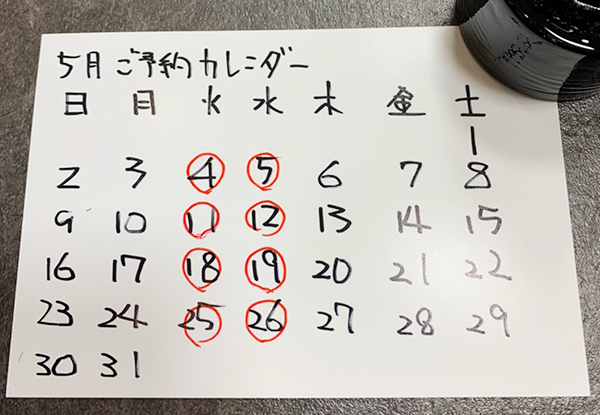 5月ご予約カレンダー
日 月 火 水 木 金 土
1
2 3 4 5 6 7 8
9 10 11 12 13 14 15
16 17 18 19 20 21 22
23 24 25 26 27 28 29
30 31